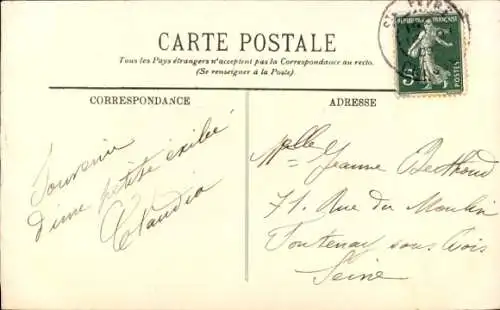 CARTE POSTALE
Tous les Pays étrangers n'acceptent pas la Correspondance au recto.
(Se renseigner à la Poste).
REPUBLIQUE FRANÇAISE
5c
POSTES
CORRESPONDANCE
Souvenir
d'une petite exilée
Claudia
ADRESSE
Mlle Jeanne Berthoud
71 Rue du Moulin
Fontenay sous Bois
Seine